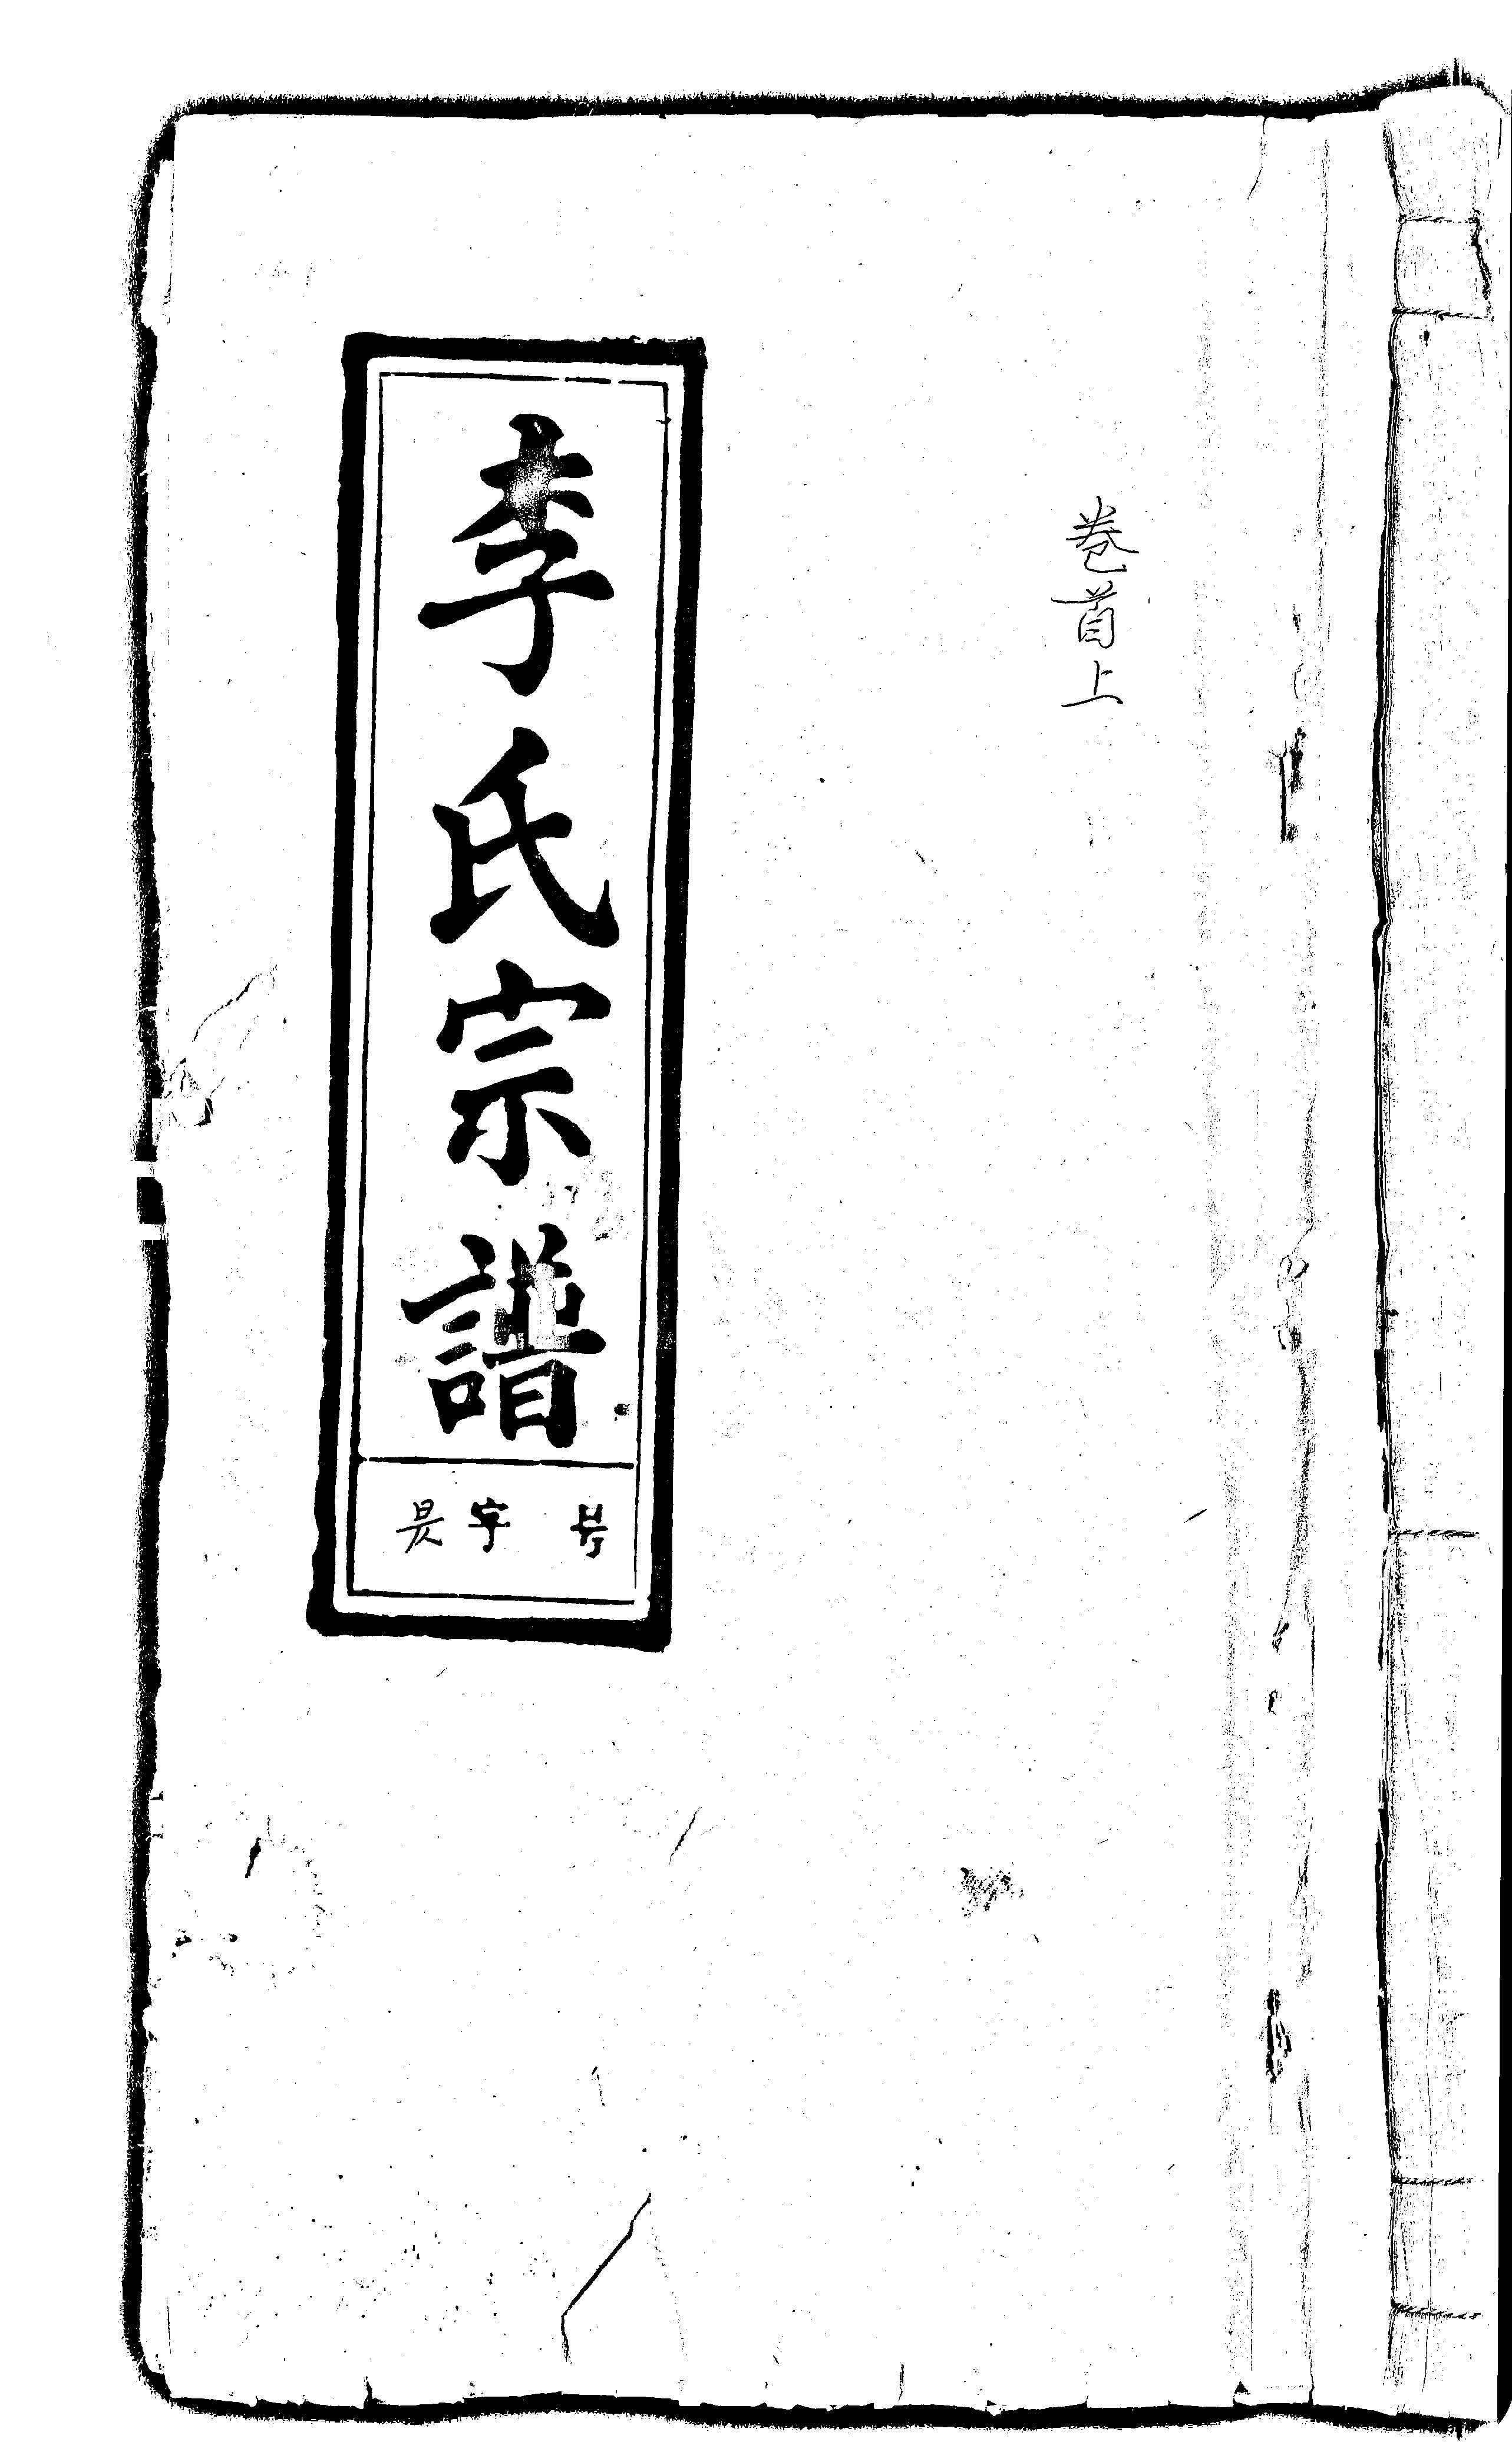 卷首上
李氏宗譜
字
号